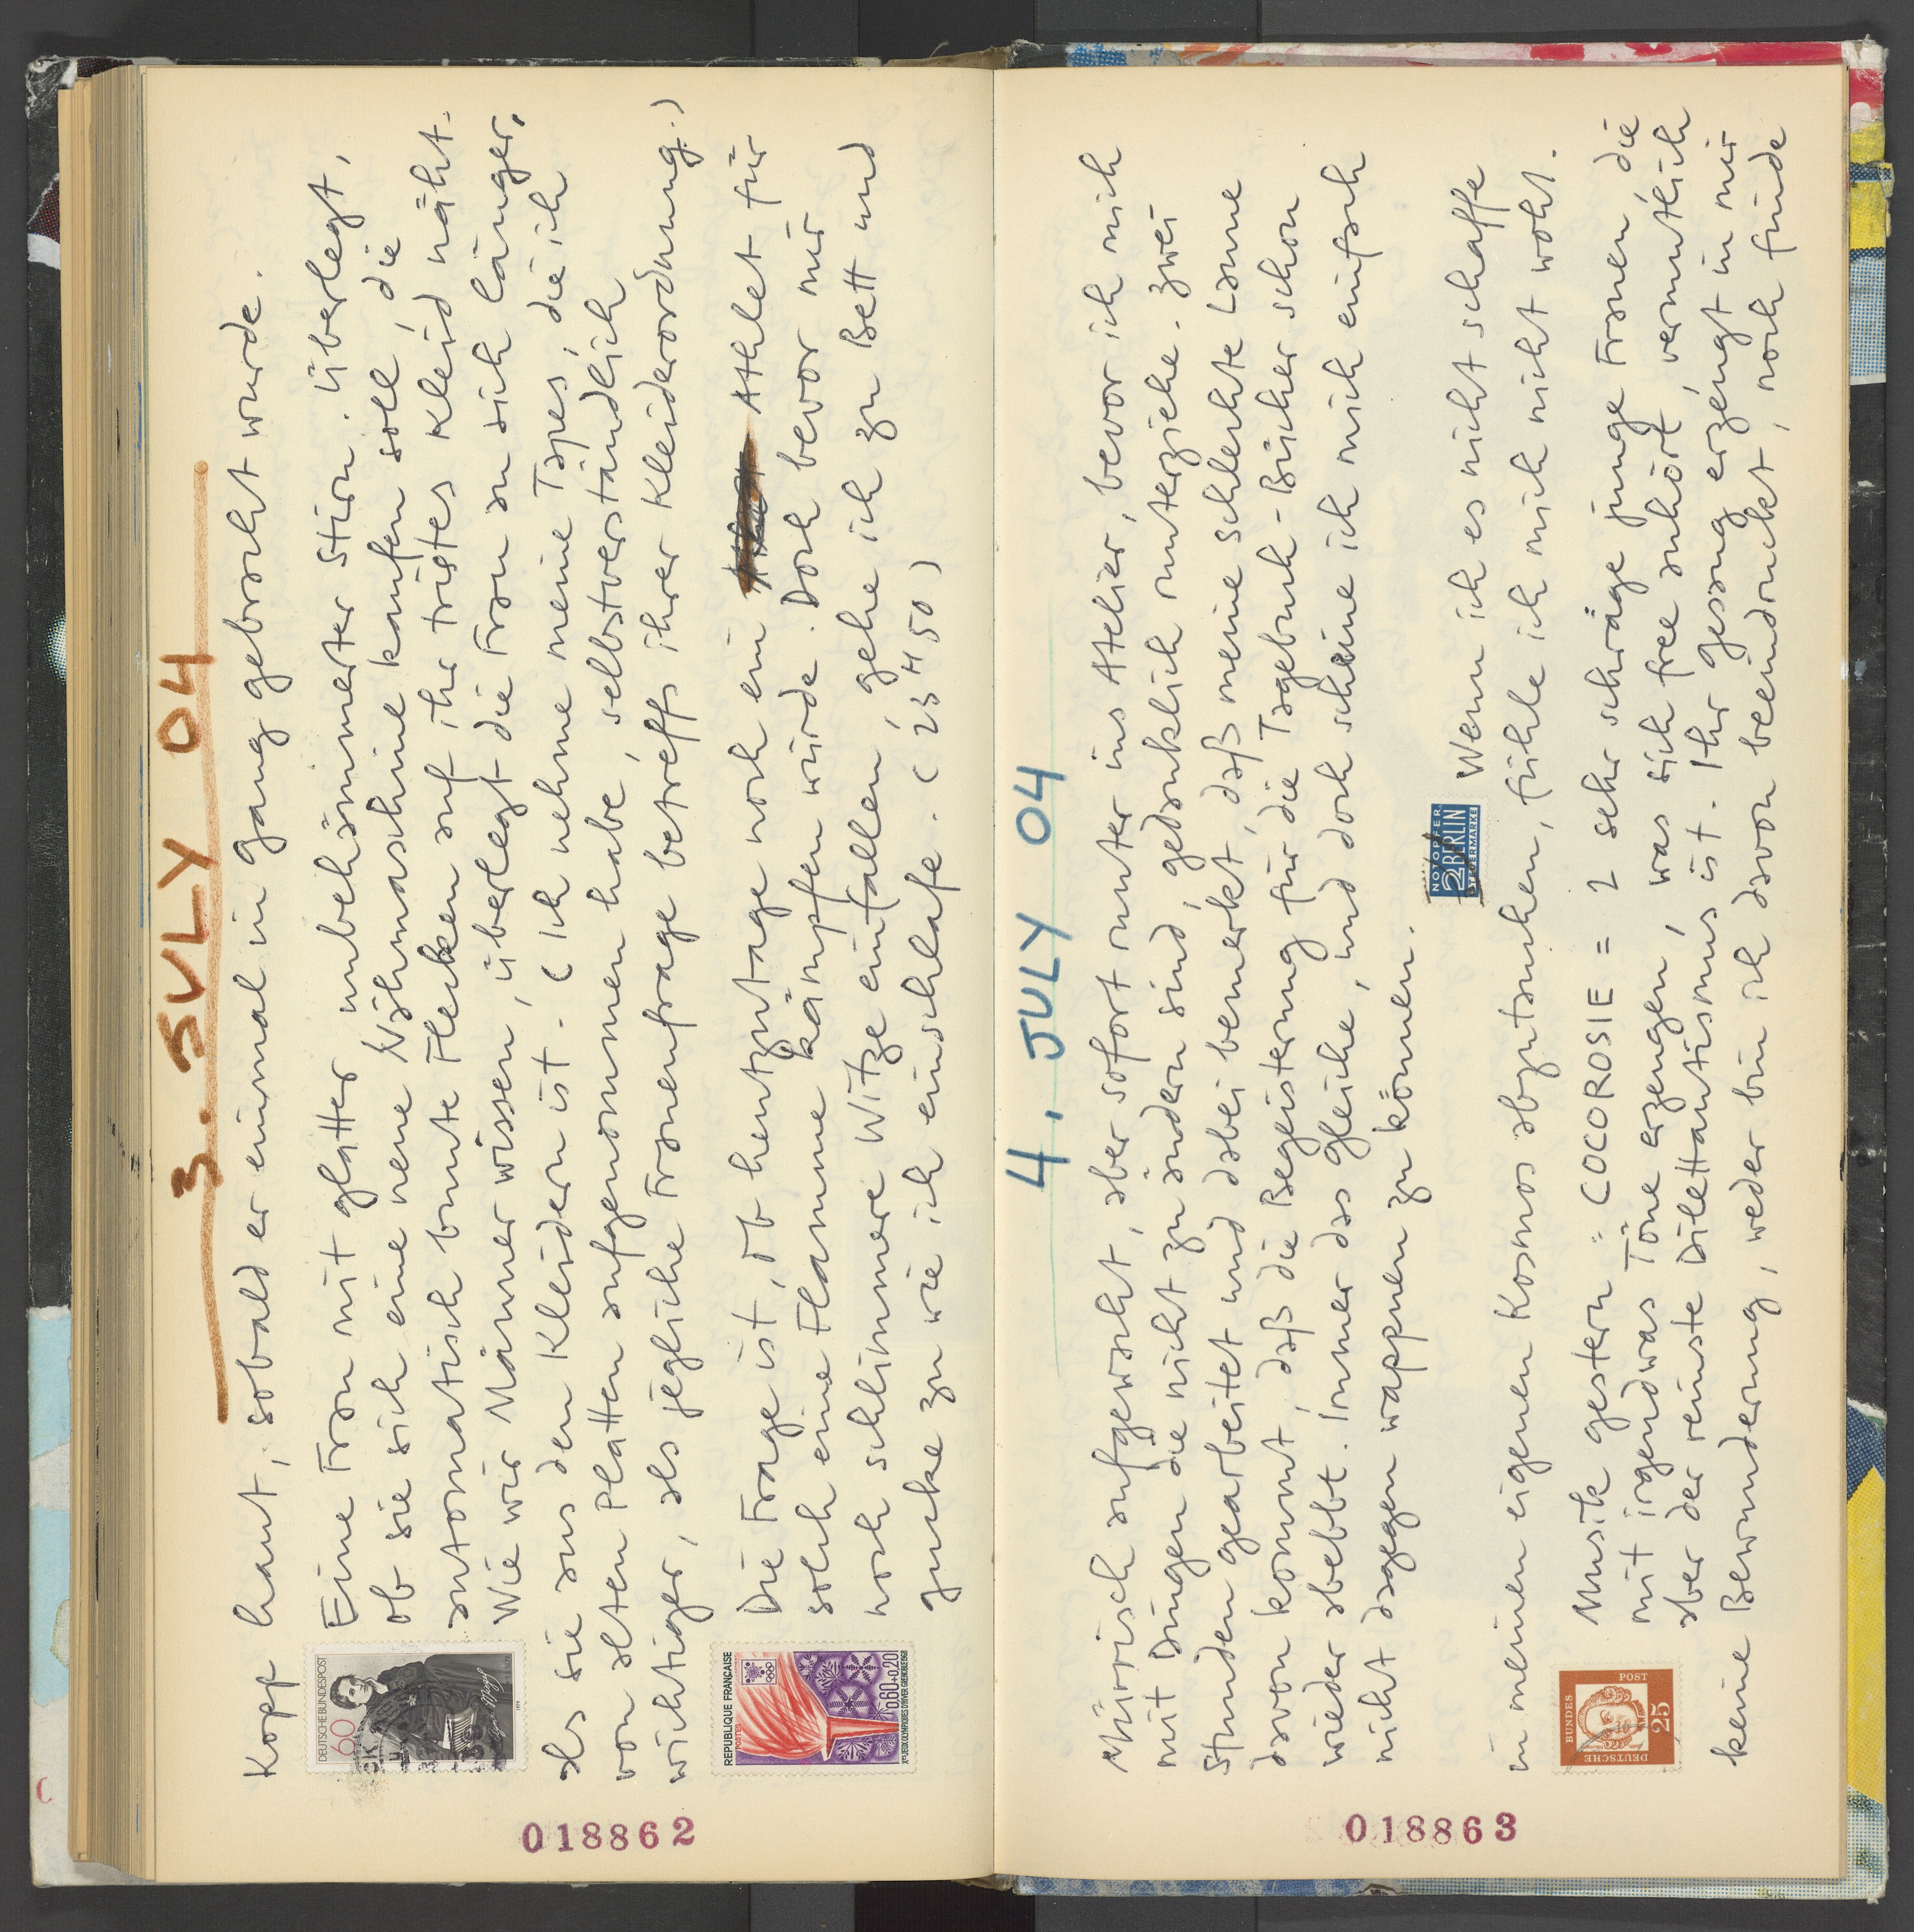 3. JULY 04
Kopf haut, sobald er einmal in gang gebracht wurde.
Eine Frau mit glatter unbekümmerter Stirn. überlegt,
ob sie sich eine neue Nähmaschine kaufen soll, die
automatisch bunte Flecken auf ihr tristes Kleid näht.
Wie wir Männer wissen, überlegt die Frau an sich länger,
als sie aus den Kleidern ist. (Ich nehme meine Tapes, die ich
von alten Platten aufgenommen habe, selbstverständlich
wichtiger, als jegliche Frauenfrage betreffs ihrer Kleiderordnung.)
DEUTSCHE BUNDESPOST
60
Die Frage ist, ob heutzutage noch ein Athlet für
solch eine Flamme kämpfen würde. Doch bevor mir
noch schlimmere Witze einfallen, gehe ich zu Bett und
gucke zu wie ich einschlafe. (23 H, 50)
REPUBLIQUE FRANÇAISE
POSTES
0.60+0.20
XES JEUX OLYMPIQUES D'HIVER GRENOBLE 1968
018862
4. JULY 04
Mürrisch aufgewacht, aber sofort runter ins Atelier, bevor ich mich
mit Dingen die nicht zu ändern sind, gedanklich runterziehe. Zwei
Stunden gearbeitet und dabei bemerkt, daß meine schlechte Laune
davon kommt, daß die Begeisterung für die Tagebuch-Bücher schon
wieder abebbt. Immer das gleiche, und doch scheine ich mich einfach
nicht dagegen wappnen zu können.
NOTOPFER
2 BERLIN
STEUERMARKE
Wenn ich es nicht schaffe
in meinen eigenen Kosmos abzutauchen, fühle ich mich nicht wohl.
Musik gestern: COCOROSIE = 2 sehr schräge junge Frauen, die
mit irgendwas Töne erzeugen, was sich free anhört, vermutlich
aber der reinste Dilettantismus ist. Ihr gesang erzeugt in mir
keine Bewunderung, weder bin ich davon beeindruckt, noch finde
DEUTSCHE
BUNDES
POST
25
018863